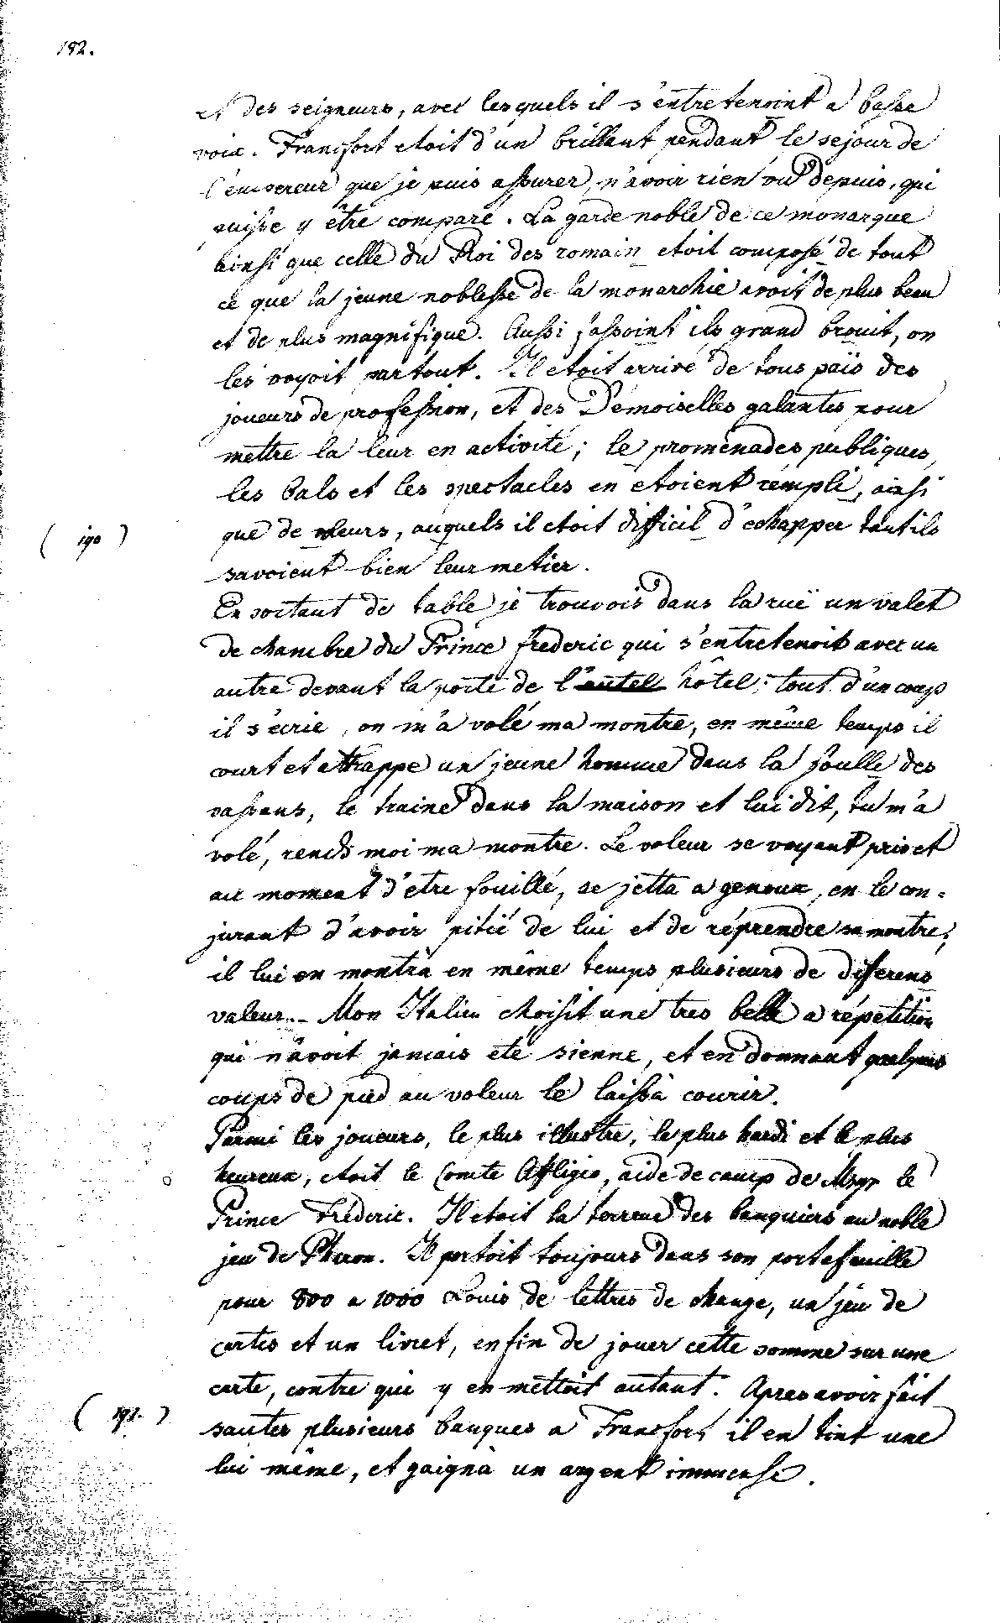 182.
et des seigneurs, avec lesquels il s'entretenoint a basse
voix. Francfort etoit d'un brillant pendant le sejour de
l'empereur que je puis assurer, n'avoir rien vu depuis, qui
puisse y être comparé. La garde noble de ce monarque
ainsi que celle du Roi des romain etoit composé de tout
ce que la jeune noblesse de la monarchie avoit de plus beau
et de plus magnifique. Aussi faisoint ils grand brouit, on
les voyoit partout. Il etoit arrivé de tous païs des
joueurs de profession, et des Demoiselles galantes pour
mettre la leur en activité; le promenades publiques,
les bals et les spectacles en etoient rempli, ainsi
( 190 )
que de voleurs, auquels il etoit difficil d'echapper tantils
savoient bien leur metier.
En sortant de table je trouvois dans la ruë un valet
de chambre du Prince frederic qui s'entretenoit avec un
autre devant la porte de l'autel hôtel; tout d'un coup
il s'écrie, on m'a volé ma montre, en même temps il
court et attrappe un jeune homme dans la foulle des
passans, le traine dans la maison et lui dit, tu m'a
volé, rends moi ma montre. Le voleur se voyant pris et
au moment d'etre fouillé, se jetta a genoux, en le con=
jurant d'avoir pitié de lui et de réprendre sa montre;
il lui en montra en même temps plusieurs de diferens
valeur. Mon Italien choisit une tres belle a répetition
qui n'avoit jamais eté sienne, et en donnant quelques
coups de pied au voleur le laissa courir.
Parmi les joueurs, le plus illustre, le plus hardi et le plus
heureux, etoit le Comte Affligio, aide de camp de Msgr le
Prince Fréderic. Il etoit la terreur des banquiers au noble
jeu de Pharon. Il portoit toujours dans son portefeuille
pour 800 a 1000 Louis de lettres de change, un jeu de
cartes et un livret, enfin de jouer cette somme sur une
carte, contre qui y en mettoit autant. Apres avoir fait
( 191. )
sauter plusieurs banques a Francfort, il en tint une
lui même, et gaigna un argent immense.